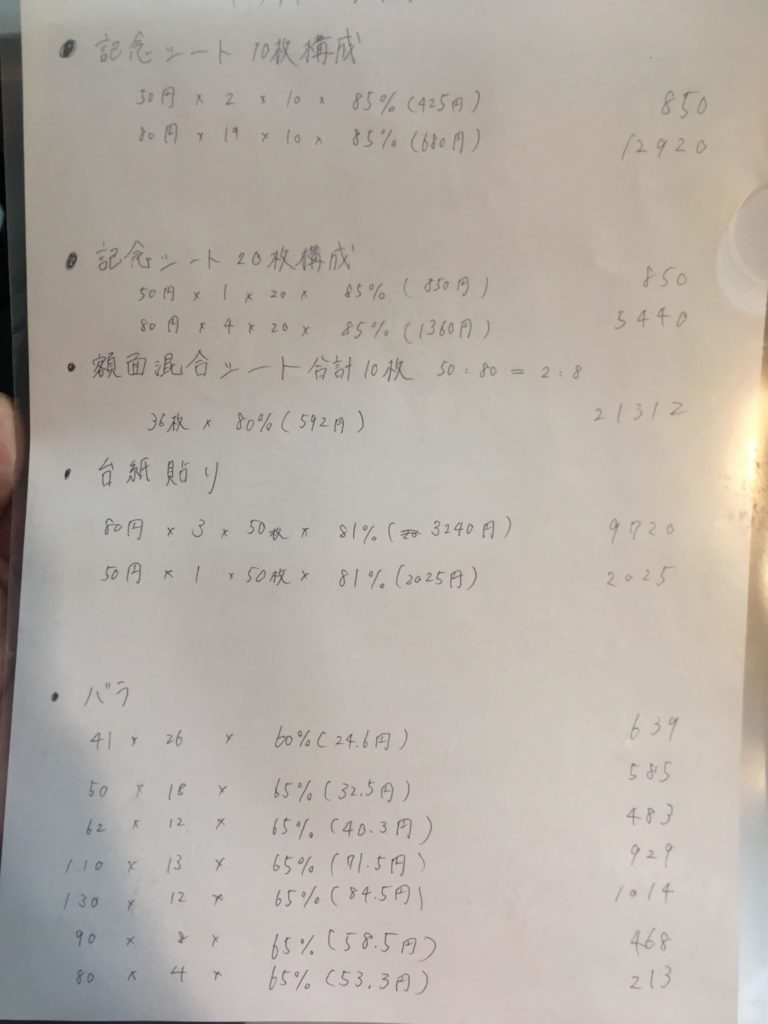 ● 記念シート 10枚構成
50円 × 2 × 10 × 85%(425円) 850
80円 × 19 × 10 × 85%(680円) 12920
● 記念シート 20枚構成
50円 × 1 × 20 × 85%(850円) 850
80円 × 4 × 20 × 85%(1360円) 5440
● 額面混合シート合計10枚 50:80 = 2:8
36枚 × 80%(592円) 21312
・ 台紙貼り
80円 × 3 × 50枚 × 81%(3240円) 9720
50円 × 1 × 50枚 × 81%(2025円) 2025
・ バラ
41 × 26 × 60%(24.6円) 639
50 × 18 × 65%(32.5円) 585
62 × 12 × 65%(40.3円) 483
110 × 13 × 65%(71.5円) 929
130 × 12 × 65%(84.5円) 1014
90 × 8 × 65%(58.5円) 468
80 × 4 × 65%(53.3円) 213